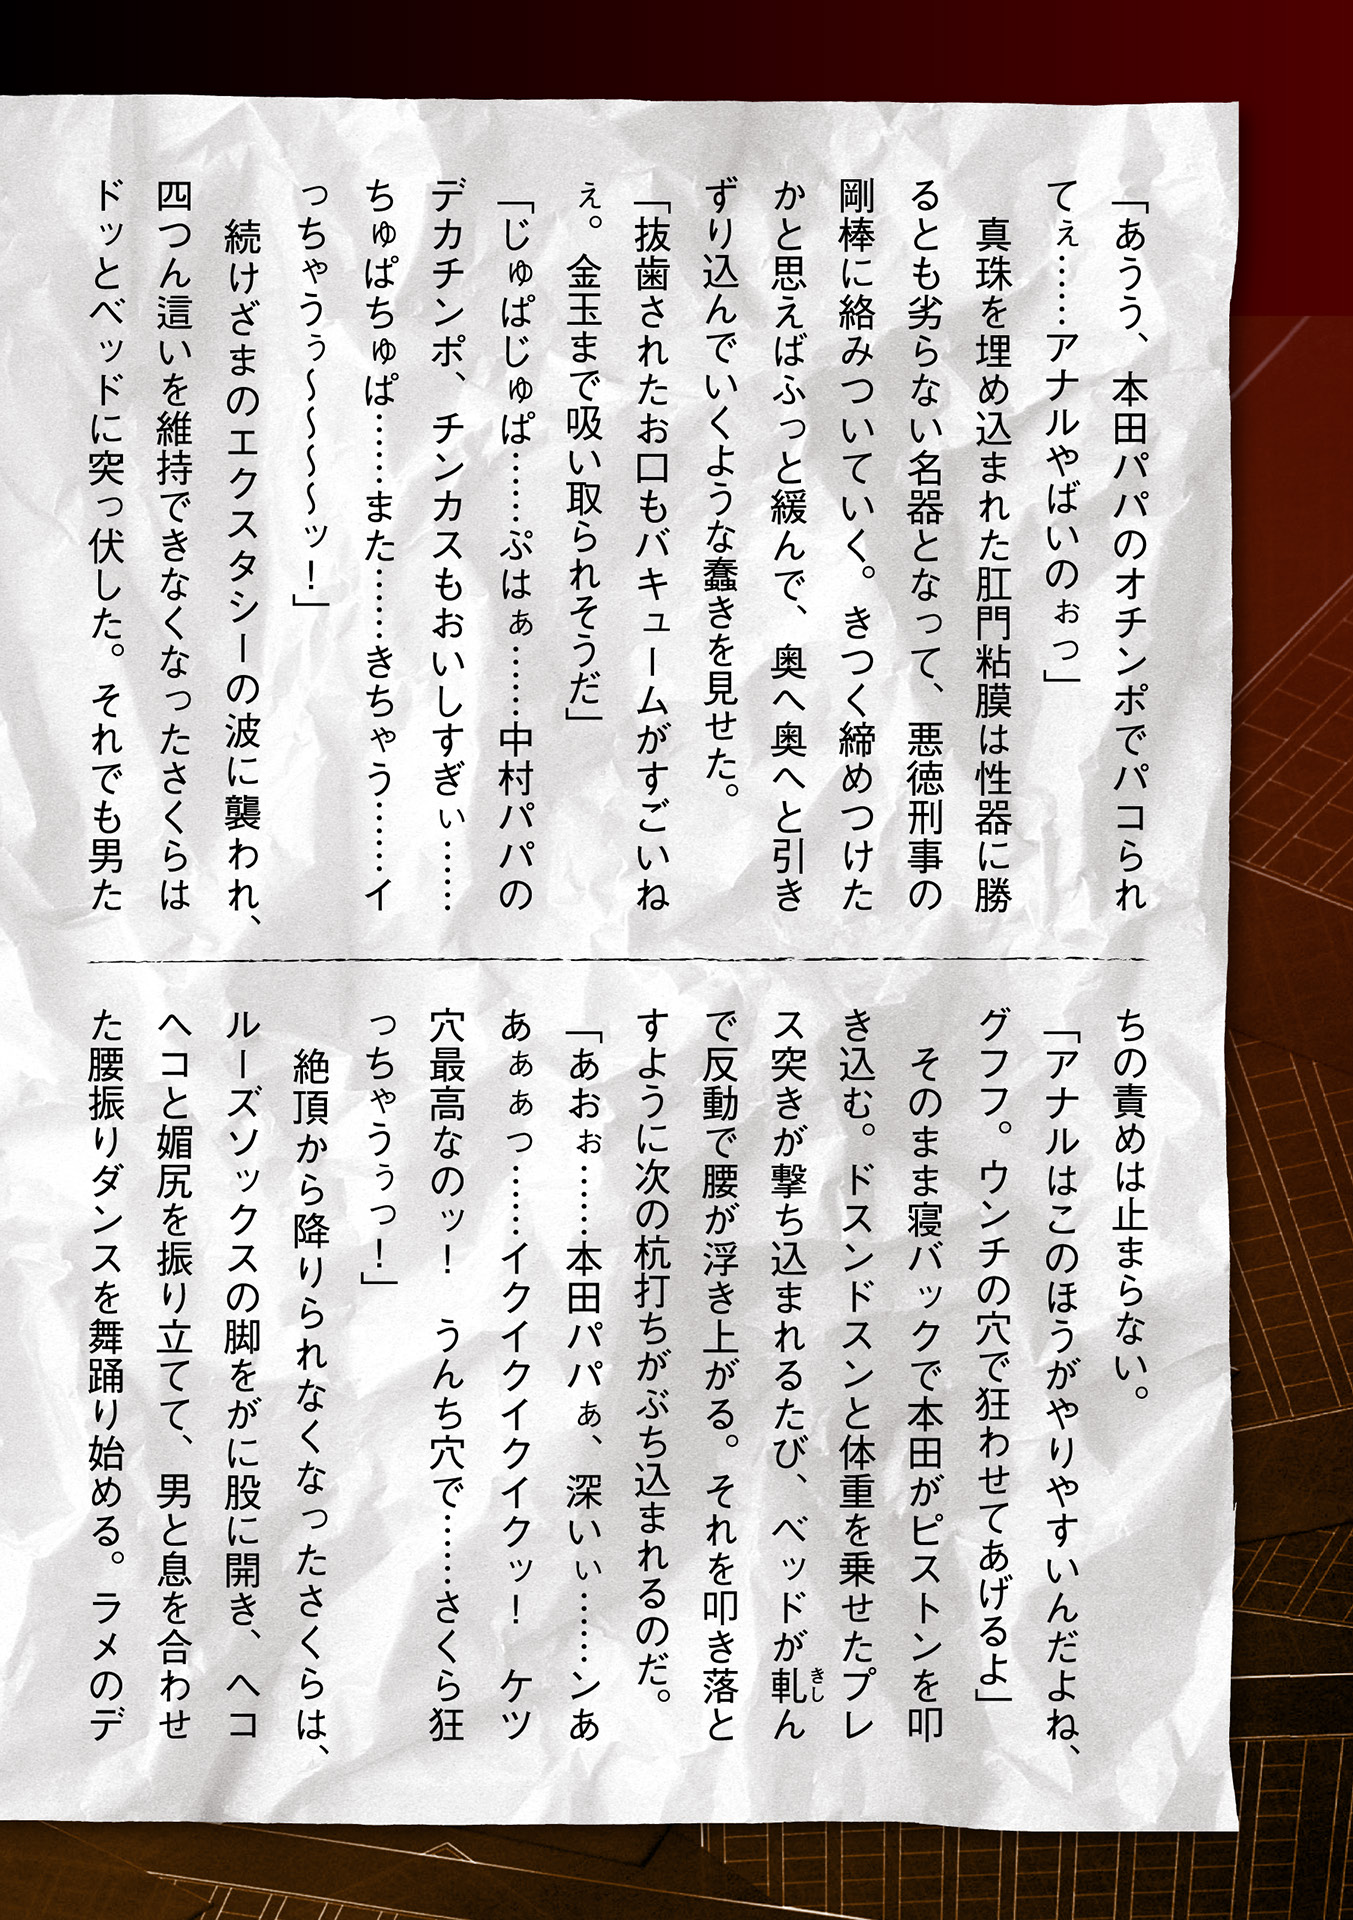 「あうう、本田パパのオチンポでパコられ
てぇ……アナルやばいのぉっ」
　真珠を埋め込まれた肛門粘膜は性器に勝
るとも劣らない名器となって、悪徳刑事の
剛棒に絡みついていく。きつく締めつけた
かと思えばふっと緩んで、奥へ奥へと引き
ずり込んでいくような蠢きを見せた。
「抜歯されたお口もバキュームがすごいね
ぇ。金玉まで吸い取られそうだ」
「じゅぱじゅぱ……ぷはぁ……中村パパの
デカチンポ、チンカスもおいしすぎぃ……
ちゅぱちゅぱ……また……きちゃう……イ
っちゃうぅ～～～～ッ！」
　続けざまのエクスタシーの波に襲われ、
四つん這いを維持できなくなったさくらは
ドッとベッドに突っ伏した。それでも男た
ちの責めは止まらない。
「アナルはこのほうがやりやすいんだよね、
グフフ。ウンチの穴で狂わせてあげるよ」
　そのまま寝バックで本田がピストンを叩
き込む。ドスンドスンと体重を乗せたプレ
ス突きが撃ち込まれるたび、ベッドが軋きしん
で反動で腰が浮き上がる。それを叩き落と
すように次の杭打ちがぶち込まれるのだ。
「あおぉ……本田パパぁ、深いぃ……ンあ
あぁぁっ……イクイクイクイクッ！　ケツ
穴最高なのッ！　うんち穴で……さくら狂
っちゃうぅっ！」
　絶頂から降りられなくなったさくらは、
ルーズソックスの脚をがに股に開き、ヘコ
ヘコと媚尻を振り立てて、男と息を合わせ
た腰振りダンスを舞踊り始める。ラメのデ